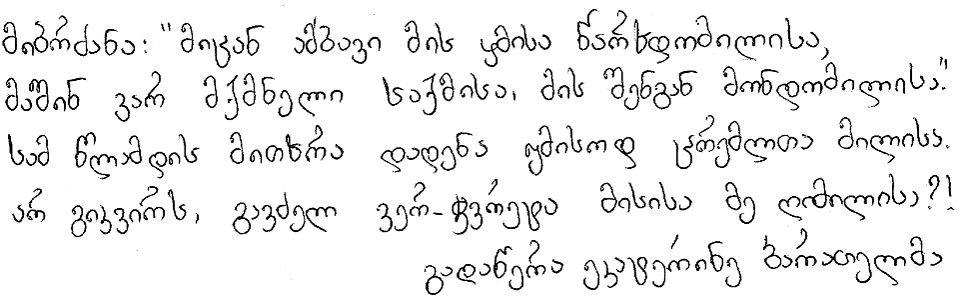 მიბრძანა: "მიცან ამბავი მის ყმისა წარხდომილისა,
მაშინ ვარ მქმნელი საქმისა, მის შენგან მონდომილისა."
სამ წლამდის მითხრა დადენა ყმისოდ ცრემლთა მილისა.
არ გიკვირს, გავძელ ვერ-ჭვრეტა მისისა მე ღიმილისა?!
გადაწერა ეკატერინე ბარათელმა